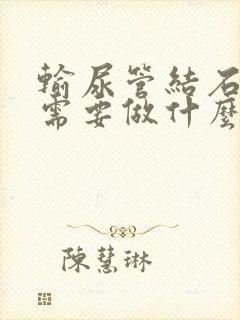 輸尿管結石
需要做什麼
陳慧琳